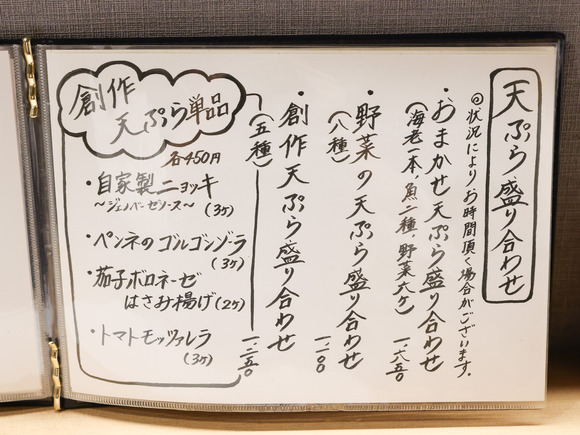 天ぷら盛り合わせ
◎状況によりお時間頂く場合がございます。
・おまかせ天ぷら盛り合わせ
(海老一本、魚二種、野菜六ケ)
一.六五〇
・野菜の天ぷら盛り合わせ
(八種)
一.一〇〇
・創作天ぷら盛り合わせ
(五種)
一.二五〇
創作
天ぷら単品
各450円
・自家製ニョッキ
〜ジェノバーゼソース〜(3ヶ)
・ペンネのゴルゴンゾーラ
(3ヶ)
・茄子ボロネーゼ
はさみ揚げ(2ヶ)
・トマトモッツァレラ
(3ヶ)